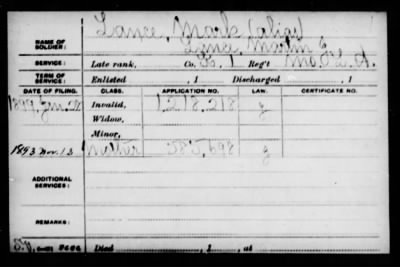 NAME OF SOLDIER: Lance, Mark (alias)
Lance, Martin
SERVICE: Late rank, Co. 1 Reg't Mo. L. A.
TERM OF SERVICE: Enlisted , 1 Discharged , 1
DATE OF FILING. CLASS. APPLICATION NO. LAW. CERTIFICATE NO.
1899 Jan. 28 Invalid, 1,218,218 g
Widow,
Minor,
1893 Nov. 13 Mother 585,698 g
ADDITIONAL SERVICES:
REMARKS:
Died , 1 , at